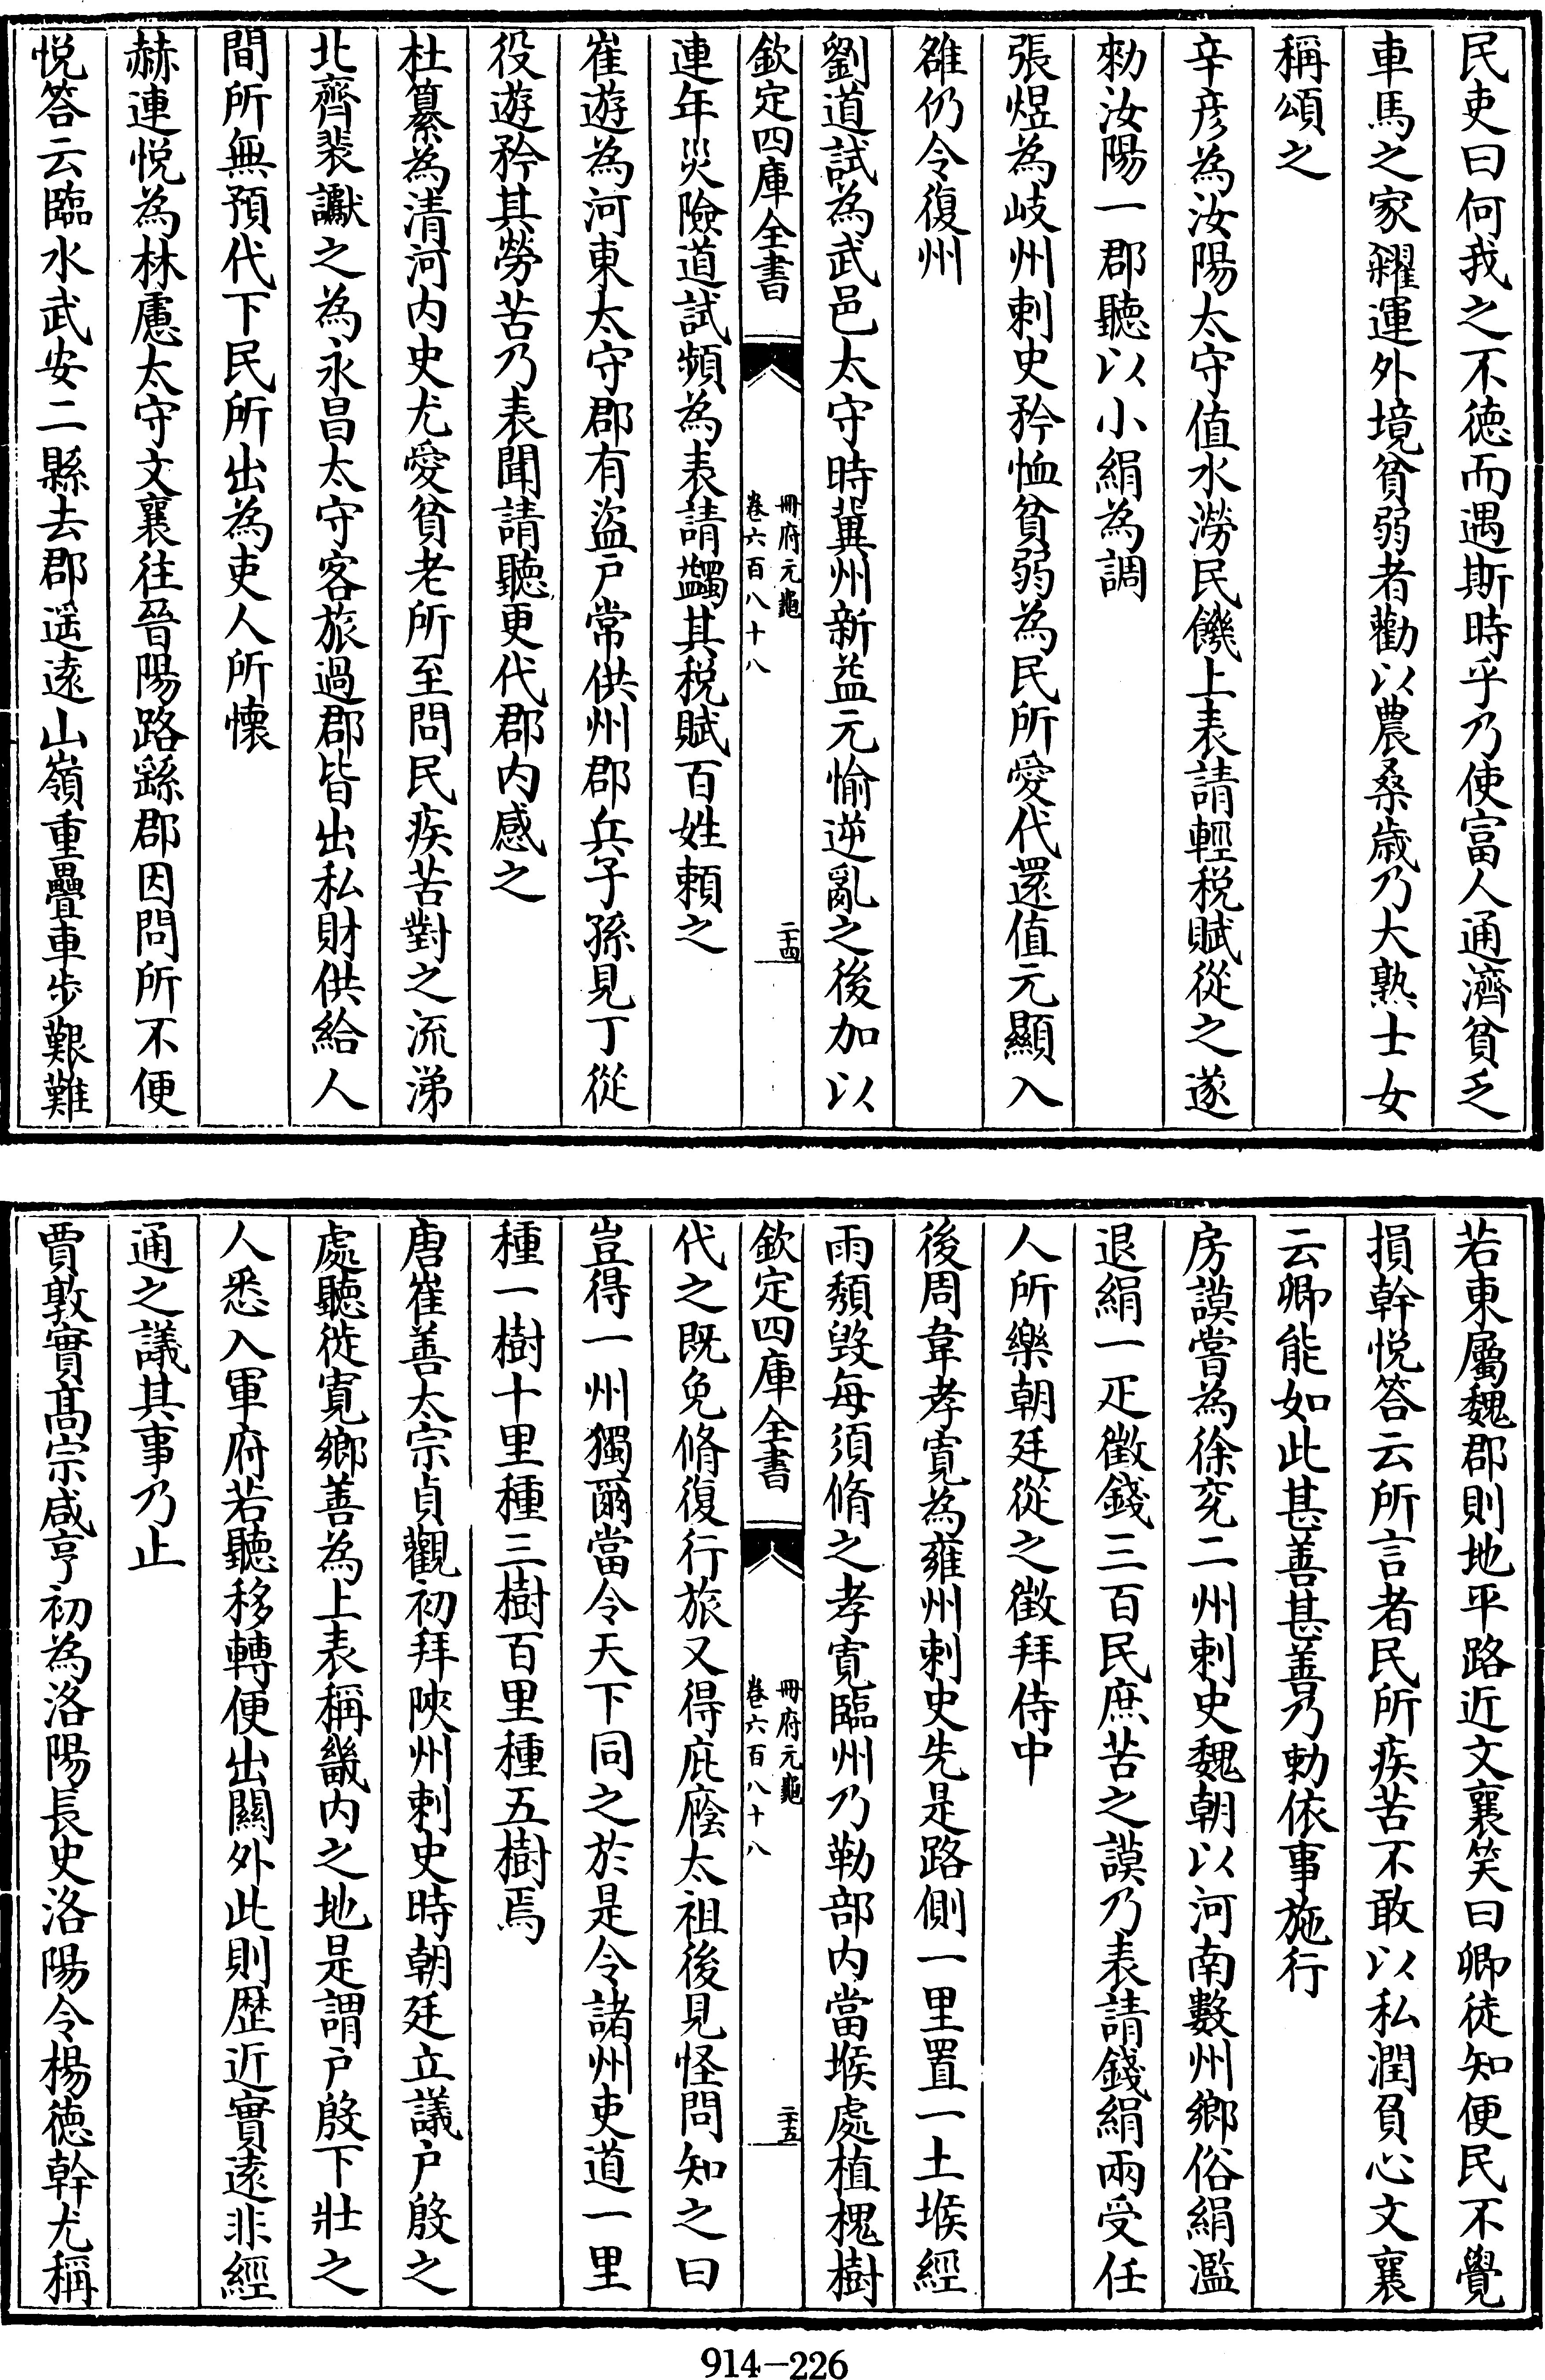 民吏曰何我之不徳而遇斯時乎乃使富人通濟貧乏
車馬之家糴運外境貧弱者勸以農桑歳乃大熟士女
稱頌之
辛彦為汝陽太守值水澇民饑上表請輕税賦從之遂
勑汝陽一郡聽以小絹為調
張煜為岐州刺史矜恤貧弱為民所愛代還值元顯入
雒仍令復州
劉道試為武邑太守時冀州新益元愉逆亂之後加以
欽定四庫全書
冊府元龜
卷六百八十八
二十四
連年災險道試頻為表請蠲其税賦百姓頼之
崔遊為河東太守郡有盗户常供州郡兵子孫見丁從
役遊矜其勞苦乃表聞請聽更代郡内感之
杜纂為清河内史尤愛貧老所至問民疾苦對之流涕
北齊裴讞之為永昌太守客旅過郡皆出私財供給人
間所無預代下民所出為吏人所懷
赫連悦為林慮太守文襄往晉陽路繇郡因問所不便
悦答云臨水武安二縣去郡遥逺山嶺重疊車步艱難
若東屬魏郡則地平路近文襄笑曰卿徒知便民不覺
損幹悦答云所言者民所疾苦不敢以私潤負心文襄
云卿能如此甚善甚善乃勅依事施行
房謨嘗為徐兖二州刺史魏朝以河南數州鄉俗絹濫
退絹一疋徵錢三百民庶苦之謨乃表請錢絹兩受任
人所樂朝廷從之徴拜侍中
後周韋孝寛為雍州刺史先是路側一里置一土堠經
雨頽毁每須脩之孝寛臨州乃勒部内當堠處植槐樹
欽定四庫全書
冊府元龜
卷六百八十八
二十五
代之既免脩復行旅又得庇廕太祖後見怪問知之曰
豈得一州獨爾當令天下同之於是令諸州吏道一里
種一樹十里種三樹百里種五樹焉
唐崔善太宗貞觀初拜陜州刺史時朝廷立議户殷之
處聽徙寛鄉善為上表稱畿内之地是謂户殷下壯之
人悉入軍府若聽移轉便出關外此則歴近實逺非經
通之議其事乃止
賈敦實髙宗咸亨初為洛陽長史洛陽令楊徳幹尤稱
914-226